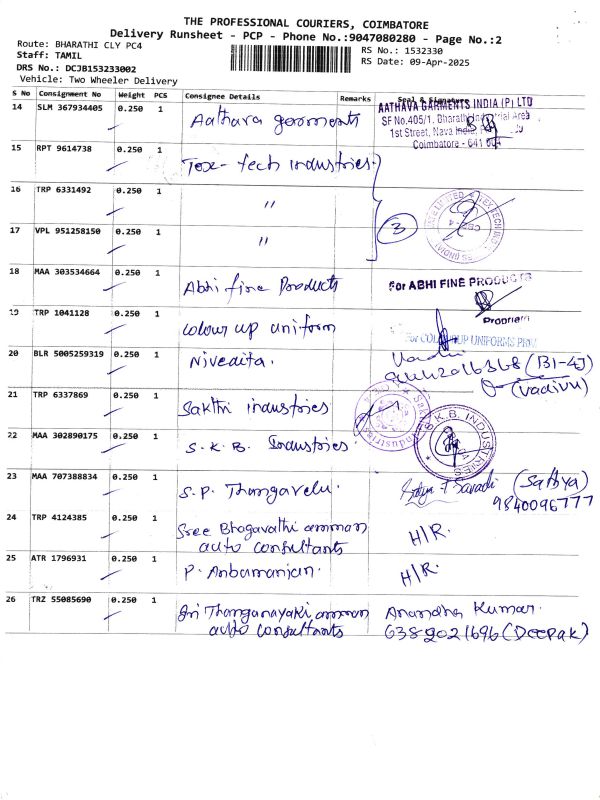 THE PROFESSIONAL COURIERS, COIMBATORE
Delivery Runsheet - PCP - Phone No.:9047080280 - Page No.:2
Route: BHARATHI CLY PC4
Staff: TAMIL
DRS No.: DCJB153233002
Vehicle: Two Wheeler Delivery
RS No.: 1532330
RS Date: 09-Apr-2025
S No Consignment No Weight PCS Consignee Details Remarks Seal & Signature
14 SLM 367934405 0.250 1 Aathava garments
AATHAVA GARMENTS INDIA (P) LTD
SF No.405/1, Bharathi Industrial Area
1st Street, Nava India,
Coimbatore - 641 004
15 RPT 9614738 0.250 1 Tex-tech industries
16 TRP 6331492 0.250 1 "
3
17 VPL 951258150 0.250 1 "
18 MAA 303534664 0.250 1 Abhi fine Products
For ABHI FINE PRODUCTS
Proprietrix
19 TRP 1041128 0.250 1 colour up uniform
For COLOUR UP UNIFORMS
20 BLR 5005259319 0.250 1 Nivedita.
(B1-4J)
(vadivu)
21 TRP 6337869 0.250 1 Sakthi industries
22 MAA 302890175 0.250 1 S.K.B. Industries.
S.K.B. INDUSTRIES
23 MAA 707388834 0.250 1 S.P. Thangavelu.
(Sathya)
9840096777
24 TRP 4124385 0.250 1 Sree Bhagavathi amman H/R.
auto consultants
25 ATR 1796931 0.250 1 P. Anbumanian. H/R.
26 TRZ 55085690 0.250 1 Sri Thanganayaki amman Anandha Kumar.
auto consultants 6389021696 (DEEPAK)